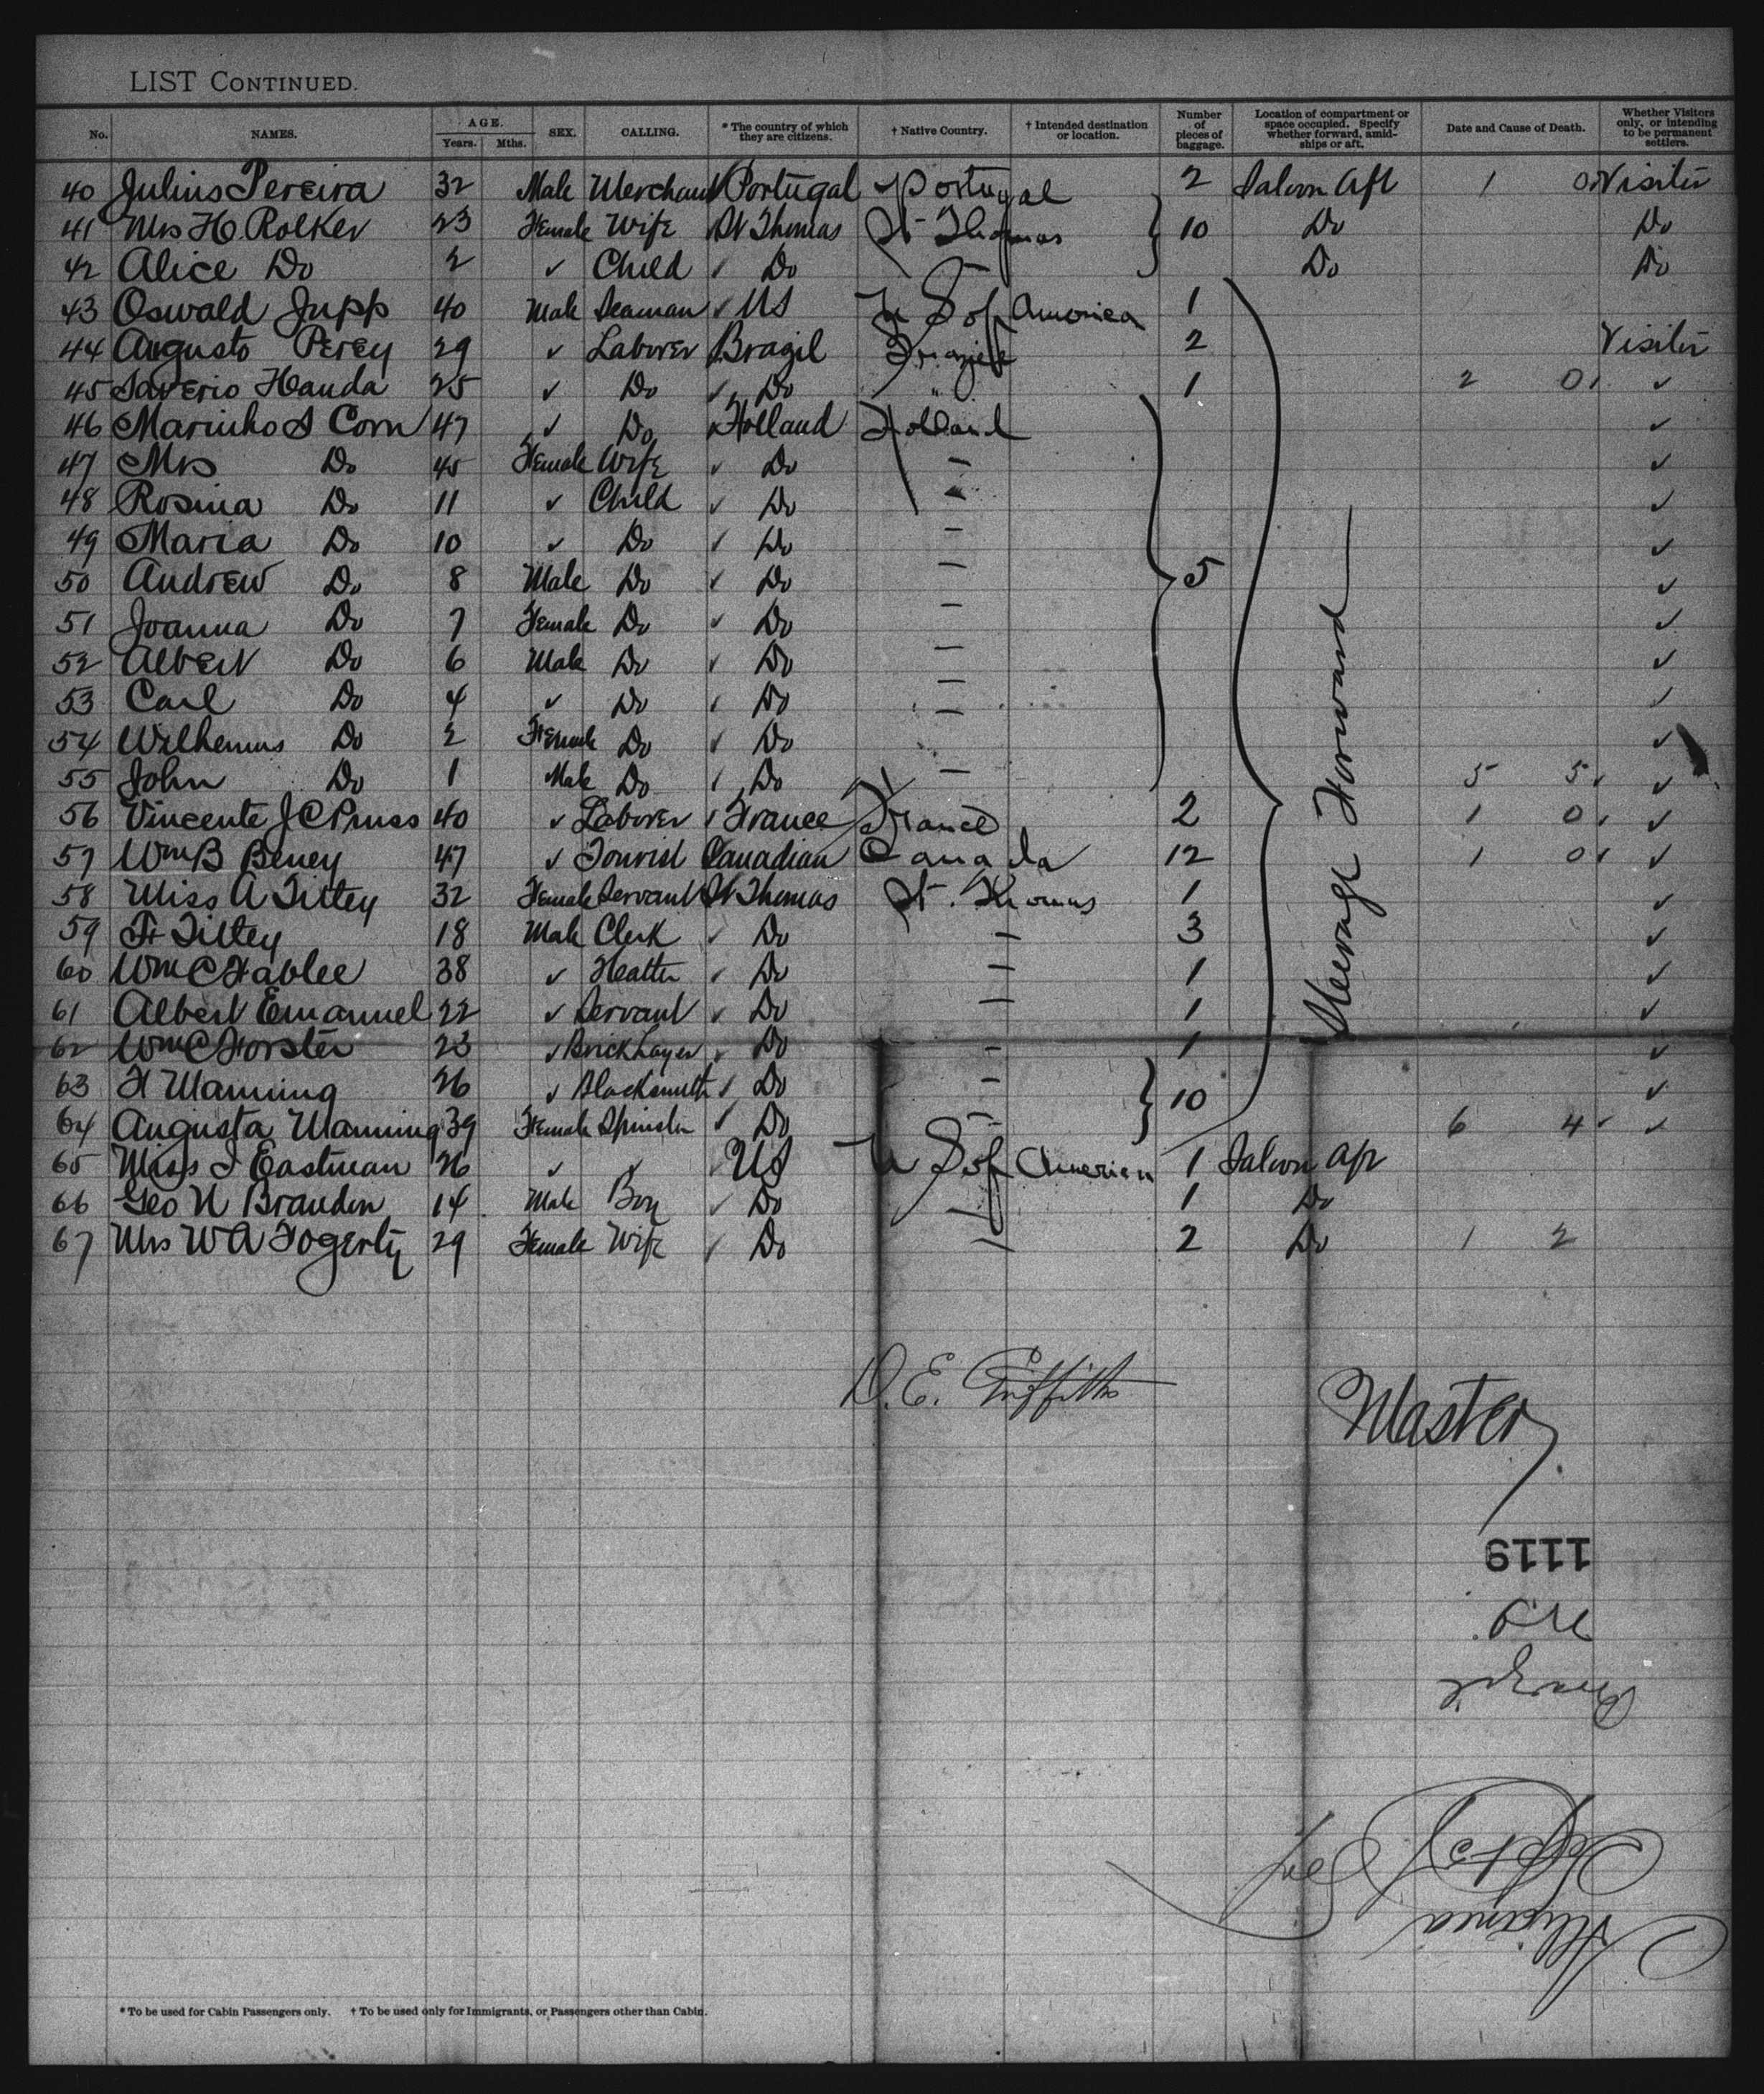 LIST CONTINUED.
No. NAMES. AGE. Years. Mths. SEX. CALLING. * The country of which they are citizens. † Native Country. † Intended destination or location. Number of pieces of baggage. Location of compartment or space occupied. Specify whether forward, amidships or aft. Date and Cause of Death. Whether Visitors only, or intending to be permanent settlers.
40 Julius Pereira 32 Male Merchant Portugal Portugal 2 Saloon Aft 1 0 Visitor
41 Mrs H. Rolker 23 Female Wife St Thomas St Thomas 10 Do Do
42 Alice Do 2 ✓ Child ✓ Do – Do Do
43 Oswald Jupp 40 Male Seaman ✓ US U S of America 1
44 Augusto Perey 29 ✓ Laborer Brazil 2 Visitor
45 Saverio Handa 25 ✓ Do ✓ Do " 1 2 0 ✓
46 Marinho S Corn 47 ✓ Do Holland Holland ✓
47 Mrs Do 45 Female Wife ✓ Do – ✓
48 Rosina Do 11 ✓ Child ✓ Do – ✓
49 Maria Do 10 ✓ Do ✓ Do – ✓
50 Andrew Do 8 Male Do ✓ Do – 5 ✓
51 Joanna Do 7 Female Do ✓ Do – ✓
52 Albert Do 6 Male Do ✓ Do – ✓
53 Carl Do 4 ✓ Do ✓ Do – ✓
54 Wilhemus Do 2 Female Do ✓ Do – ✓
55 John Do 1 Male Do ✓ Do – 5 5 ✓
56 Vincente J C 40 ✓ Laborer ✓ France France 2 1 0 ✓
57 Wm B Beney 47 ✓ Tourist Canadian Canada 12 1 0 ✓
58 Miss A Tittey 32 Female Servant St Thomas St. Thomas 1 ✓
59 F Tittey 18 Male Clerk ✓ Do – 3 ✓
60 Wm C 38 ✓ ✓ Do – 1 ✓
61 Albert Emanuel 22 ✓ Servant ✓ Do – 1 ✓
62 Wm C Forster 23 ✓ Brick Layer ✓ Do – 1 ✓
63 H Manning 26 ✓ Blacksmith ✓ Do – 10 ✓
64 Augusta Manning 39 Female Spinster ✓ Do – 6 4 ✓
65 Miss I Eastman 26 ✓ ✓ US U S of America 1 Saloon Aft
66 Geo N Brandon 14 Male Boy ✓ Do – 1 Do
67 Mrs W A Fogerty 29 Female Wife ✓ Do – 2 Do 1 2
Steerage Forward
D. E. Griffiths
Master
1119
Allianca
* To be used for Cabin Passengers only. † To be used only for Immigrants, or Passengers other than Cabin.